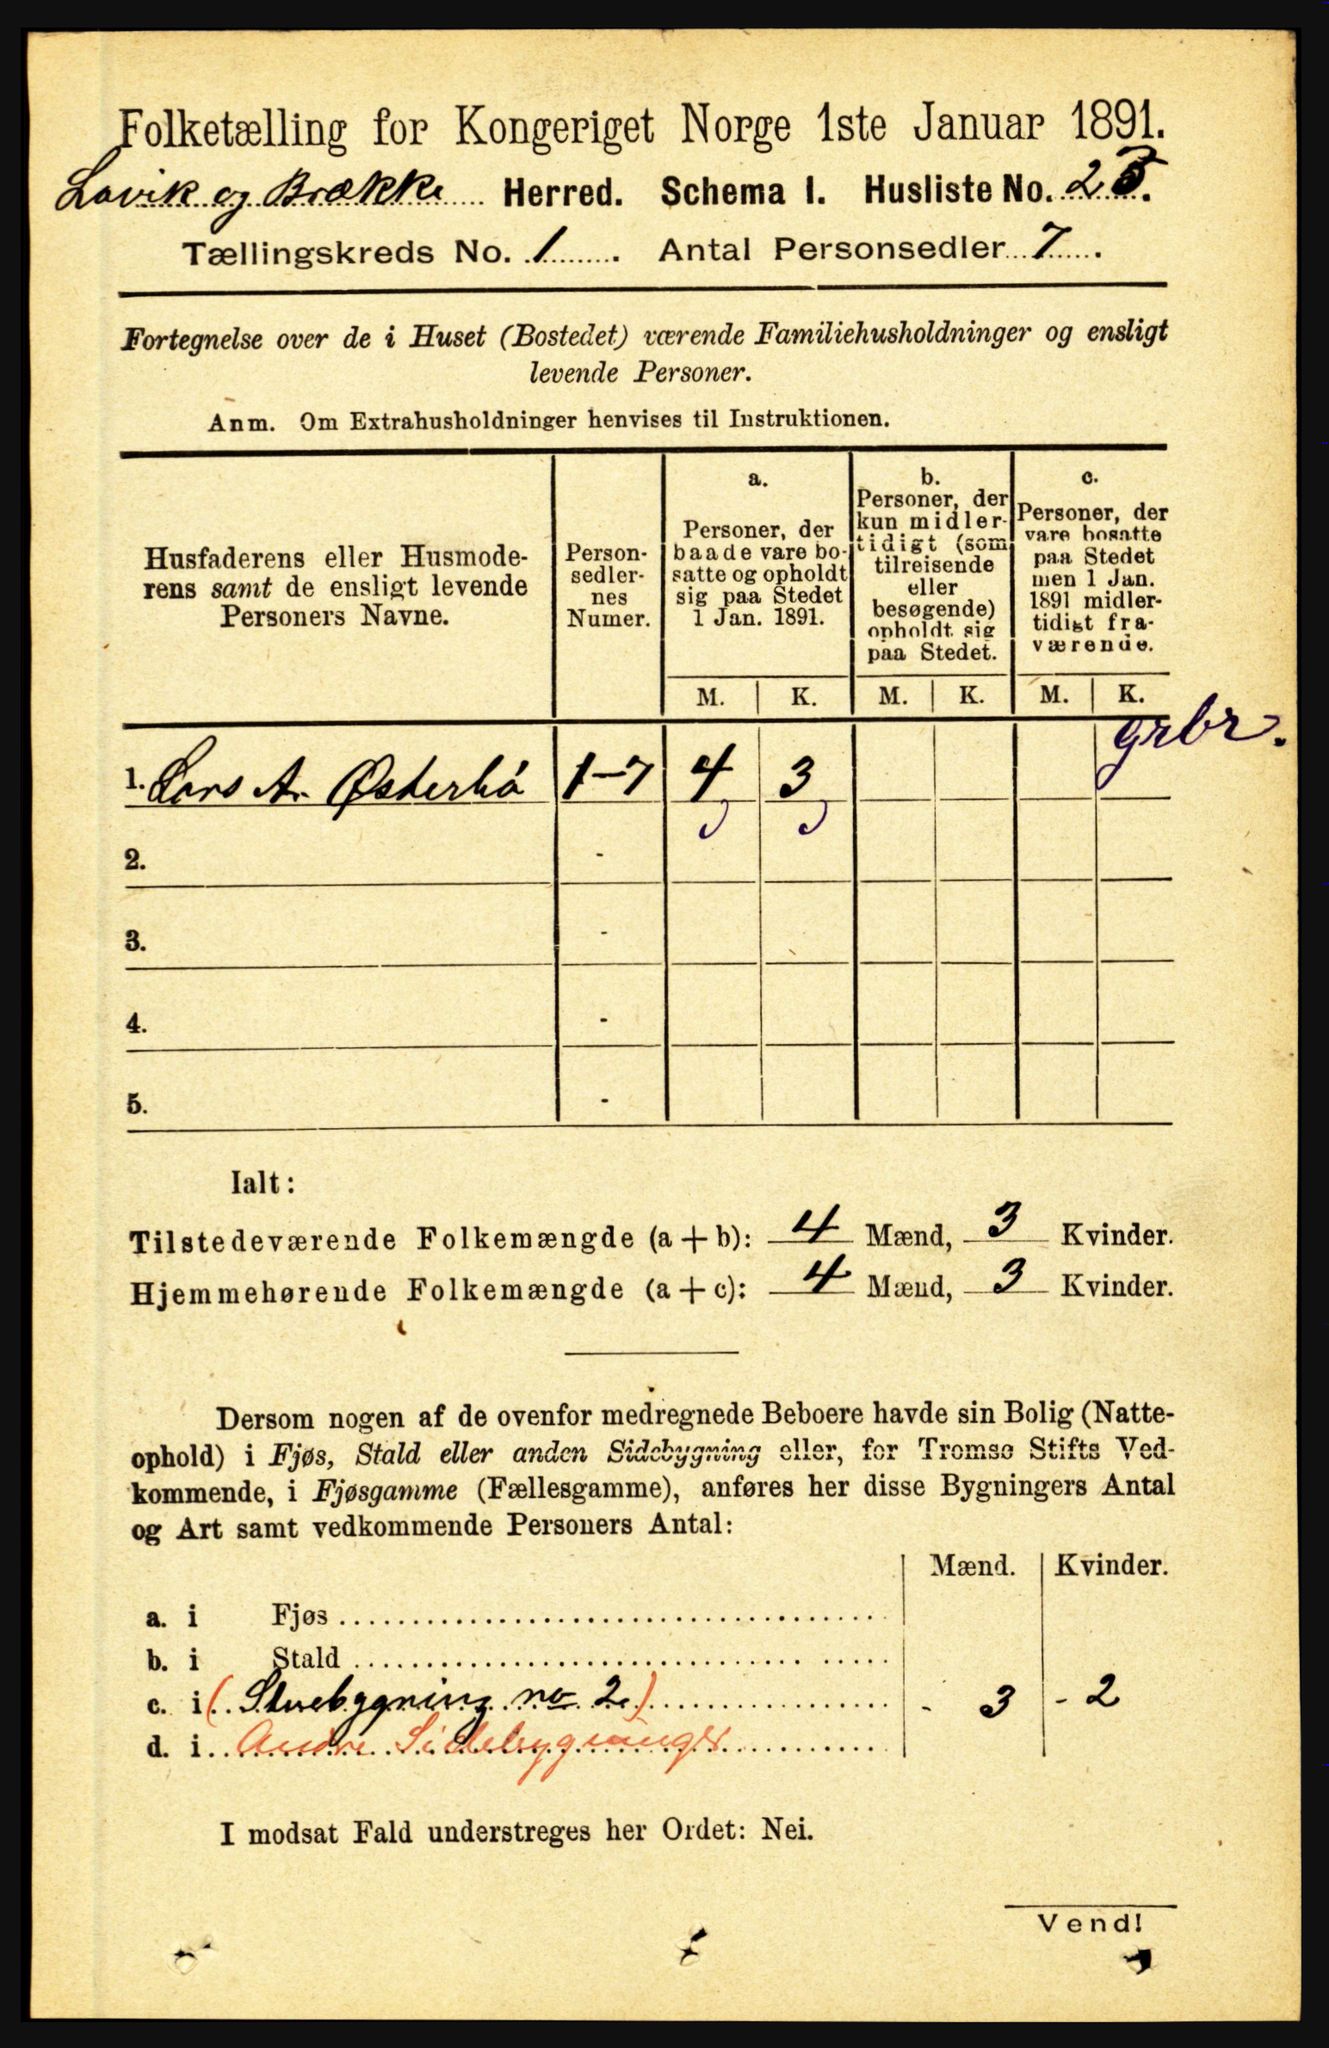 Folketælling for Kongeriget Norge 1ste Januar 1891.
Lavik og Brække Herred. Schema I. Husliste No. 25.
Tællingskreds No. 1. Antal Personsedler 7.
Fortegnelse over de i Huset (Bostedet) værende Familiehusholdninger og ensligt
levende Personer.
Anm. Om Extrahusholdninger henvises til Instruktionen.
Husfaderens eller Husmode-
rens samt de ensligt levende
Personers Navne.
Person-
sedler-
nes
Numer.
a.
Personer, der
baade vare bo-
satte og opholdt
sig paa Stedet
1 Jan. 1891.
b.
Personer, der
kun midler-
tidigt (som
tilreisende
eller
besøgende)
opholdt sig
paa Stedet.
c.
Personer, der
vare bosatte
paa Stedet
men 1 Jan.
1891 midler-
tidigt fra-
værende.
M. K. M. K. M. K.
grbr.
1. Lars A. Østerbø 1-7 4 3
2. -
3. -
4. -
5. -
Ialt:
Tilstedeværende Folkemængde (a + b): 4 Mænd, 3 Kvinder.
Hjemmehørende Folkemængde (a + c): 4 Mænd, 3 Kvinder.
Dersom nogen af de ovenfor medregnede Beboere havde sin Bolig (Natte-
ophold) i Fjøs, Stald eller anden Sidebygning eller, for Tromsø Stifts Ved-
kommende, i Fjøsgamme (Fællesgamme), anføres her disse Bygningers Antal
og Art samt vedkommende Personers Antal:
Mænd. Kvinder.
a. i Fjøs
b. i Stald
c. i (Stuebygning no 2.) - 3 - 2
d. i Andre Sidebygninger
I modsat Fald understreges her Ordet: Nei.
Vend!